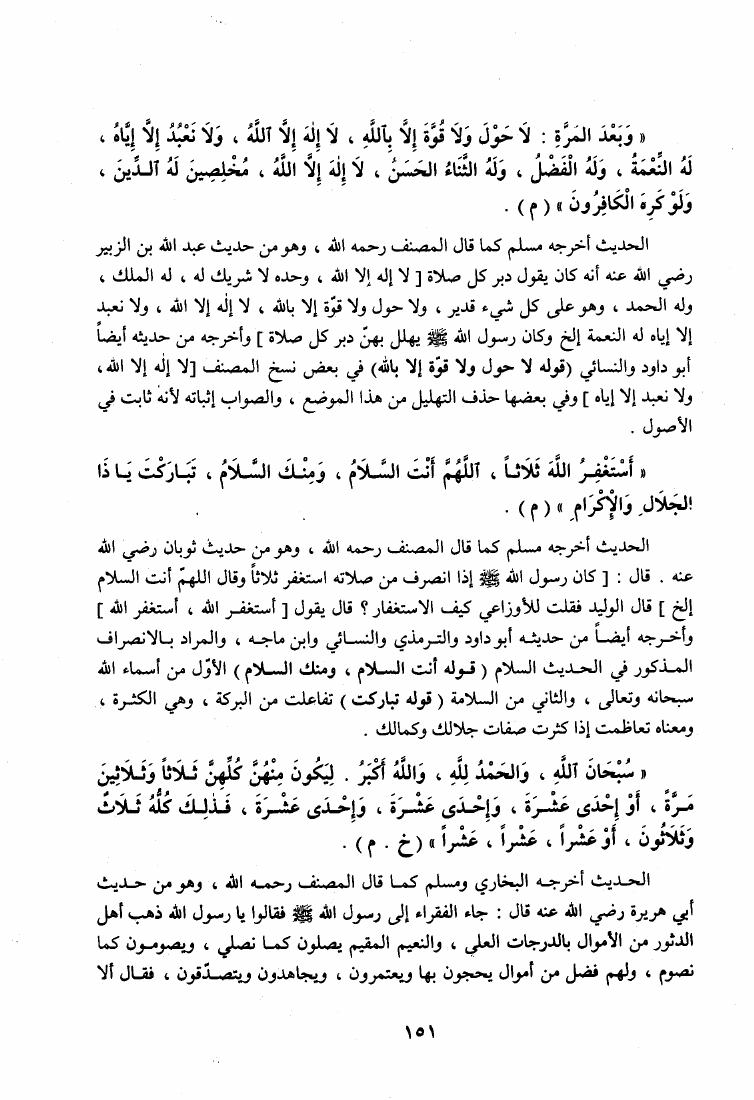 « وَبَعْدَ المَرَّةِ : لَا حَوْلَ وَلَا قُوَّةَ إِلَّا بِاللَّهِ ، لَا إِلَهَ إِلَّا اللَّهُ ، وَلَا نَعْبُدُ إِلَّا إِيَّاهُ ،
لَهُ النِّعْمَةُ ، وَلَهُ الْفَضْلُ ، وَلَهُ الثَّنَاءُ الحَسَنُ ، لَا إِلَهَ إِلَّا اللَّهُ ، مُخْلِصِينَ لَهُ الدِّينَ ،
وَلَوْ كَرِهَ الْكَافِرُونَ » ( م ) .
الحديث أخرجه مسلم كما قال المصنف رحمه الله ، وهو من حديث عبد الله بن الزبير
رضي الله عنه أنه كان يقول دبر كل صلاة [ لا إله إلا الله ، وحده لا شريك له ، له الملك ،
وله الحمد ، وهو على كل شيء قدير ، ولا حول ولا قوّة إلا بالله ، لا إله إلا الله ، ولا نعبد
إلا إياه له النعمة إلخ وكان رسول الله ﷺ يهلل بهنّ دبر كل صلاة ] وأخرجه من حديثه أيضاً
أبو داود والنسائي (قوله لا حول ولا قوّة إلا بالله) في بعض نسخ المصنف [لا إله إلا الله،
ولا نعبد إلا إياه ] وفي بعضها حذف التهليل من هذا الموضع ، والصواب إثباته لأنه ثابت في
الأصول .
« أَسْتَغْفِرُ اللَّهَ ثَلَاثاً ، اللَّهُمَّ أَنْتَ السَّلَامُ ، وَمِنْكَ السَّلَامُ ، تَبَارَكْتَ يَا ذَا
الجَلَالِ وَالْإِكْرَامِ » ( م ) .
الحديث أخرجه مسلم كما قال المصنف رحمه الله ، وهو من حديث ثوبان رضي الله
عنه . قال : [ كان رسول الله ﷺ إذا انصرف من صلاته استغفر ثلاثاً وقال اللهمّ أنت السلام
إلخ ] قال الوليد فقلت للأوزاعي كيف الاستغفار ؟ قال يقول [ أستغفر الله ، أستغفر الله ]
وأخرجه أيضاً من حديثه أبو داود والترمذي والنسائي وابن ماجه ، والمراد بالانصراف
المذكور في الحديث السلام ( قوله أنت السلام ، ومنك السلام ) الأوّل من أسماء الله
سبحانه وتعالى ، والثاني من السلامة ( قوله تباركت ) تفاعلت من البركة ، وهي الكثرة ،
ومعناه تعاظمت إذا كثرت صفات جلالك وكمالك .
« سُبْحَانَ اللَّهِ ، وَالحَمْدُ لِلَّهِ ، وَاللَّهُ أَكْبَرُ . لِيَكُونَ مِنْهُنَّ كُلِّهِنَّ ثَلَاثاً وَثَلَاثِينَ
مَرَّةً ، أَوْ إِحْدَى عَشْرَةَ ، وَإِحْدَى عَشْرَةَ ، وَإِحْدَى عَشْرَةَ ، فَذٰلِكَ كُلُّهُ ثَلَاثٌ
وَثَلَاثُونَ ، أَوْ عَشْراً ، عَشْراً ، عَشْراً » (خ . م ) .
الحديث أخرجه البخاري ومسلم كما قال المصنف رحمه الله ، وهو من حديث
أبي هريرة رضي الله عنه قال : جاء الفقراء إلى رسول الله ﷺ فقالوا يا رسول الله ذهب أهل
الدثور من الأموال بالدرجات العلى ، والنعيم المقيم يصلون كما نصلي ، ويصومون كما
نصوم ، ولهم فضل من أموال يحجون بها ويعتمرون ، ويجاهدون ويتصدّقون ، فقال ألا
١٥١